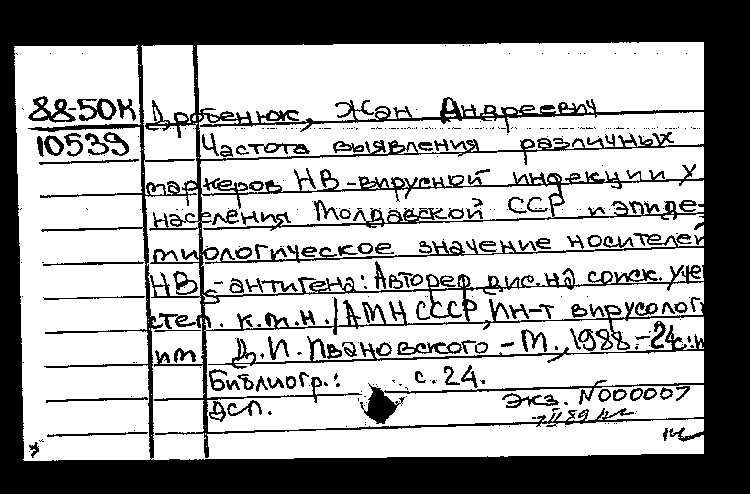 88-50К Дробенюк, Жан Андреевич
10539 Частота выявления различных
маркеров НВ-вирусной инфекции у
населения Молдавской ССР и эпиде-
миологическое значение носителей
НВs-антигена: Автореф. дис. на соиск. учен
степ. к.м.н. /АМН СССР, Ин-т вирусолог
им Д.И. Ивановского. - М., 1988. - 24с.:и
Библиогр.: с. 24.
ДСП. Экз. N000007